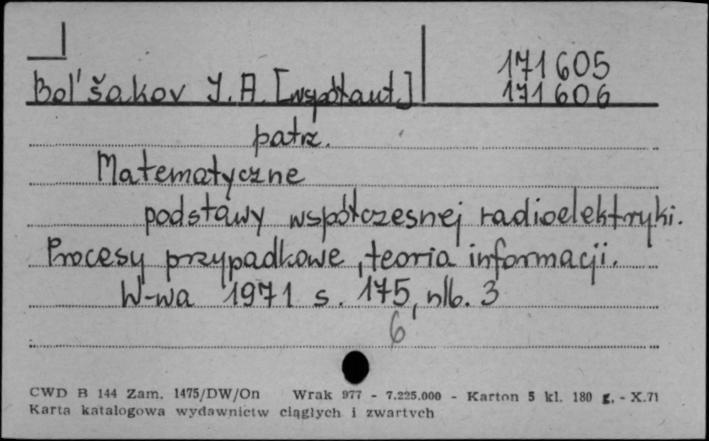 171605
Bol'šakov I. A. [współaut.] 171606
patrz.
Matematyczne
podstawy współczesnej radioelektryki.
Procesy przypadkowe, teoria informacji.
W-wa 1971 s. 175, nlb. 3
6
CWD B 144 Zam. 1475/DW/On Wrak 977 - 7.225.000 - Karton 5 kl. 180 g. - X.71
Karta katalogowa wydawnictw ciągłych i zwartych